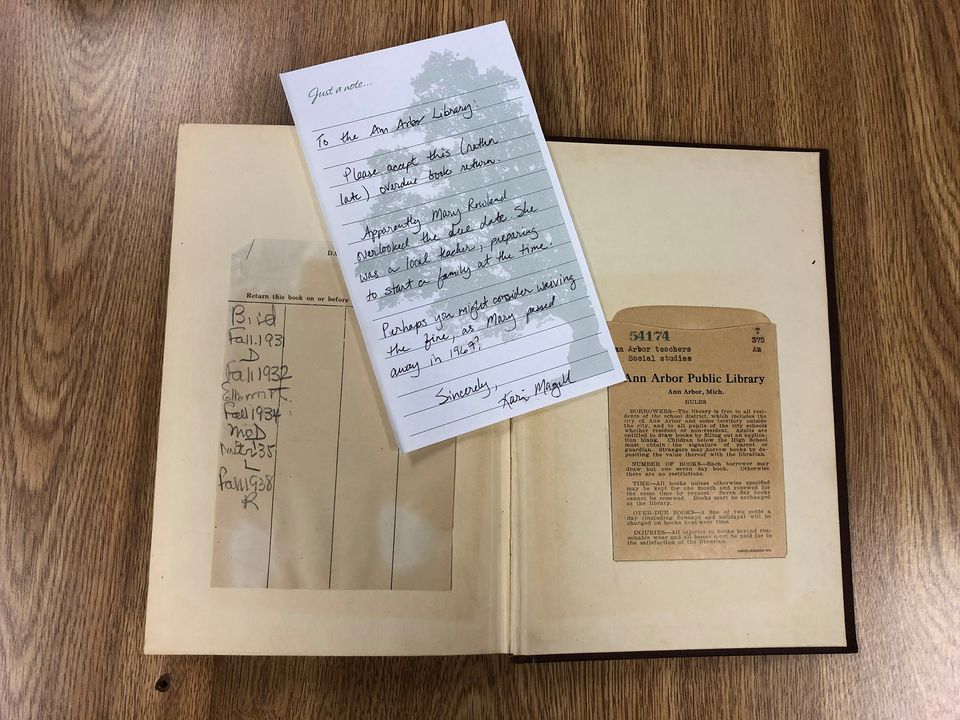 Just a note...
To the Ann Arbor Library:
Please accept this (rather
late) overdue book return.
Apparently Mary Rowland
overlooked the due date. She
was a local teacher, preparing
to start a family at the time.
Perhaps you might consider waiving
the fine, as Mary passed
away in 1967?
Sincerely,
Kari Magill
DA
Return this book on or before
Bird
Fall.193
D
Fall 1932
Fall 1934
McD
35
L
Fall 1938
R
54174
nn Arbor teachers
Social studies
T
375
An
Ann Arbor Public Library
Ann Arbor, Mich.
RULES
BORROWERS—The library is free to all resi-
dents of the school district, which includes the
city of Ann Arbor and some territory outside
the city, and to all pupils of the city schools
whether resident or non-resident. Adults are
entitled to draw books by filling out an applica-
tion blank. Children below the High School
must obtain the signature of parent or
guardian. Strangers may borrow books by de-
positing the value thereof with the librarian.
NUMBER OF BOOKS—Each borrower may
draw but one seven day book. Otherwise
there are no restrictions.
TIME—All books unless otherwise specified
may be kept for one month and renewed for
the same time by request. Seven day books
cannot be renewed. Books must be exchanged
at the library.
OVER-DUE BOOKS—A fine of two cents a
day (including Sundays and holidays) will be
charged on books kept over time.
INJURIES—All injuries to books beyond rea-
sonable wear and all losses must be paid for to
the satisfaction of the librarian.